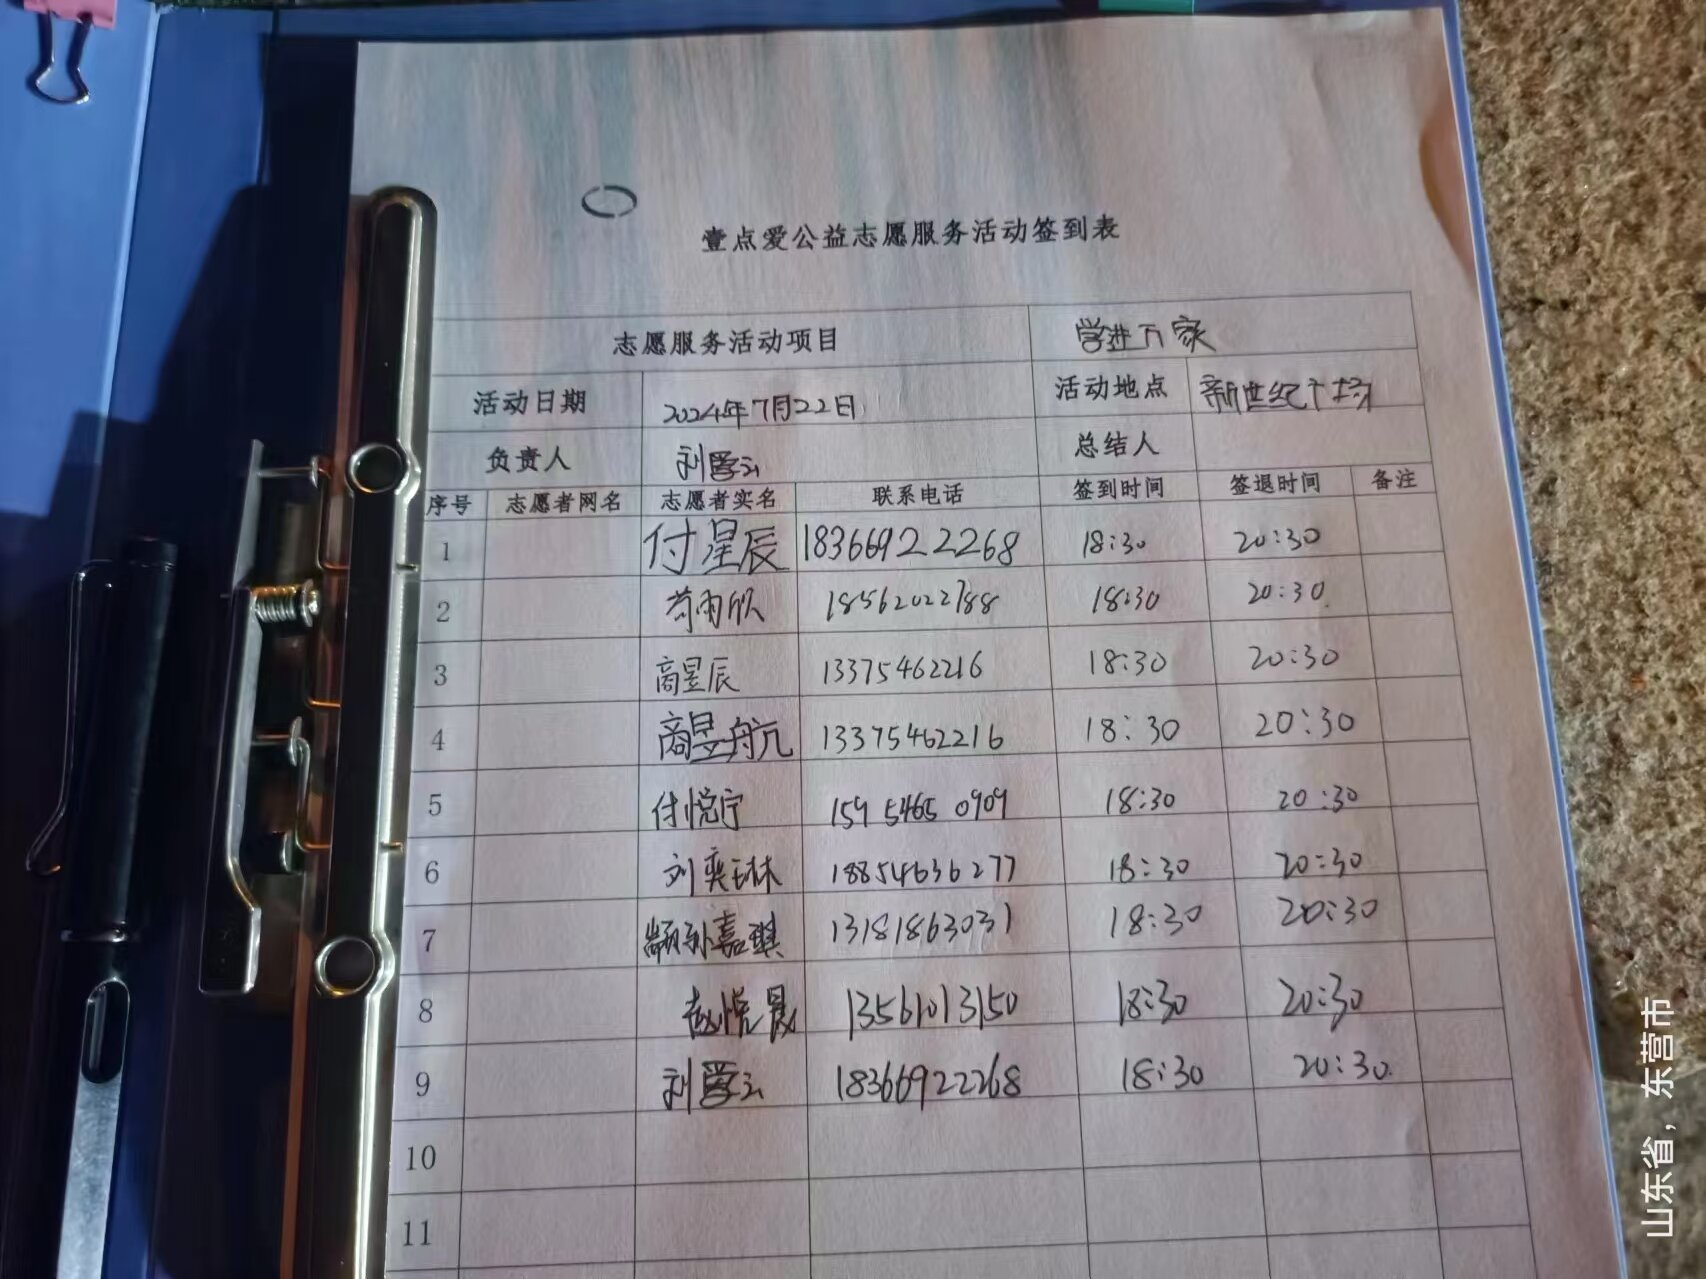 壹点爱公益志愿服务活动签到表
志愿服务活动项目 学进万家
活动日期 2024年7月22日 活动地点 新世纪广场
负责人 刘学云 总结人
序号 志愿者网名 志愿者实名 联系电话 签到时间 签退时间 备注
1 付星辰 18366922268 18:30 20:30
2 苟雨欣 18562022788 18:30 20:30
3 商昱辰 13375462216 18:30 20:30
4 商昱航 13375462216 18:30 20:30
5 付悦宁 159 5465 0909 18:30 20:30
6 刘奕琳 18854636277 18:30 20:30
7 颛孙嘉琪 13181863031 18:30 20:30
8 赵悦晟 13561013150 18:30 20:30
9 刘学云 18366922268 18:30 20:30
10
11
山东省，东营市